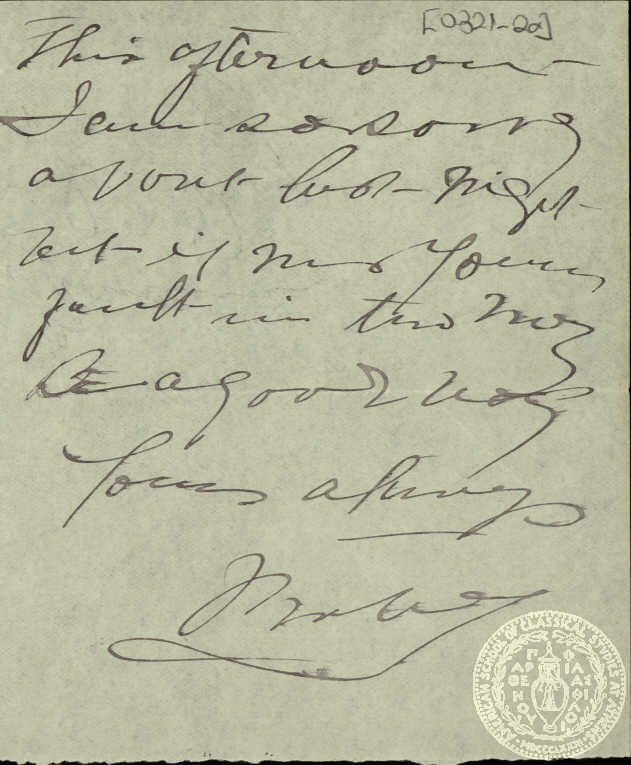 [0321-22]
This afternoon —
I am so sorry
about last night
but it was your
fault in the way
Be a good boy
Yours always
AMERICAN SCHOOL OF CLASSICAL STUDIES AT ATHENS
ΠΑΡΘΕΝΟΥ ΦΙΛΑΣ ΦΙΛΟΙ
MDCCCLXXXI